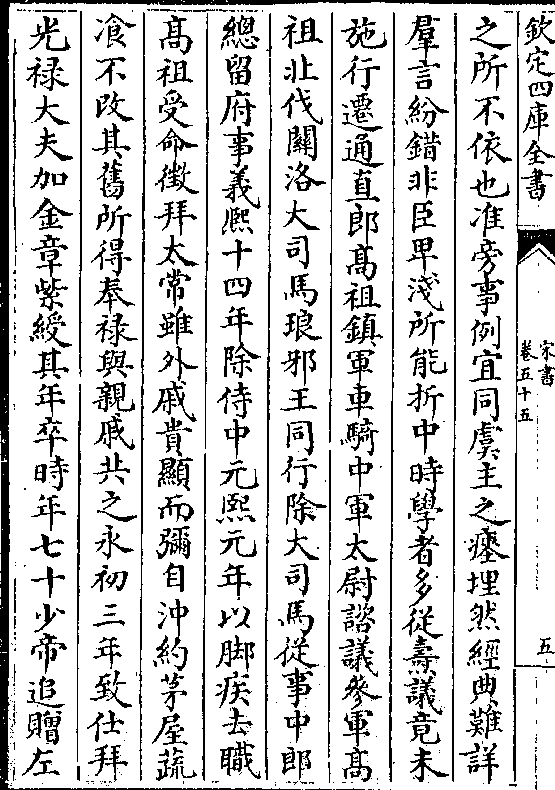 欽定四庫全書
宋書
卷五十五
五
之所不依也准旁事例宜同虞主之瘞埋然經典難詳
羣言紛錯非臣卑淺所能折中時學者多從壽議竟未
施行遷通直郎髙祖鎮軍車騎中軍太尉諮議參軍髙
祖北伐關洛大司馬琅邪王同行除大司馬從事中郎
總留府事義熙十四年除侍中元熙元年以脚疾去職
髙祖受命徵拜太常雖外戚貴顯而彌自沖約茅屋蔬
飡不改其舊所得奉禄與親戚共之永初三年致仕拜
光禄大夫加金章紫綬其年卒時年七十少帝追贈左